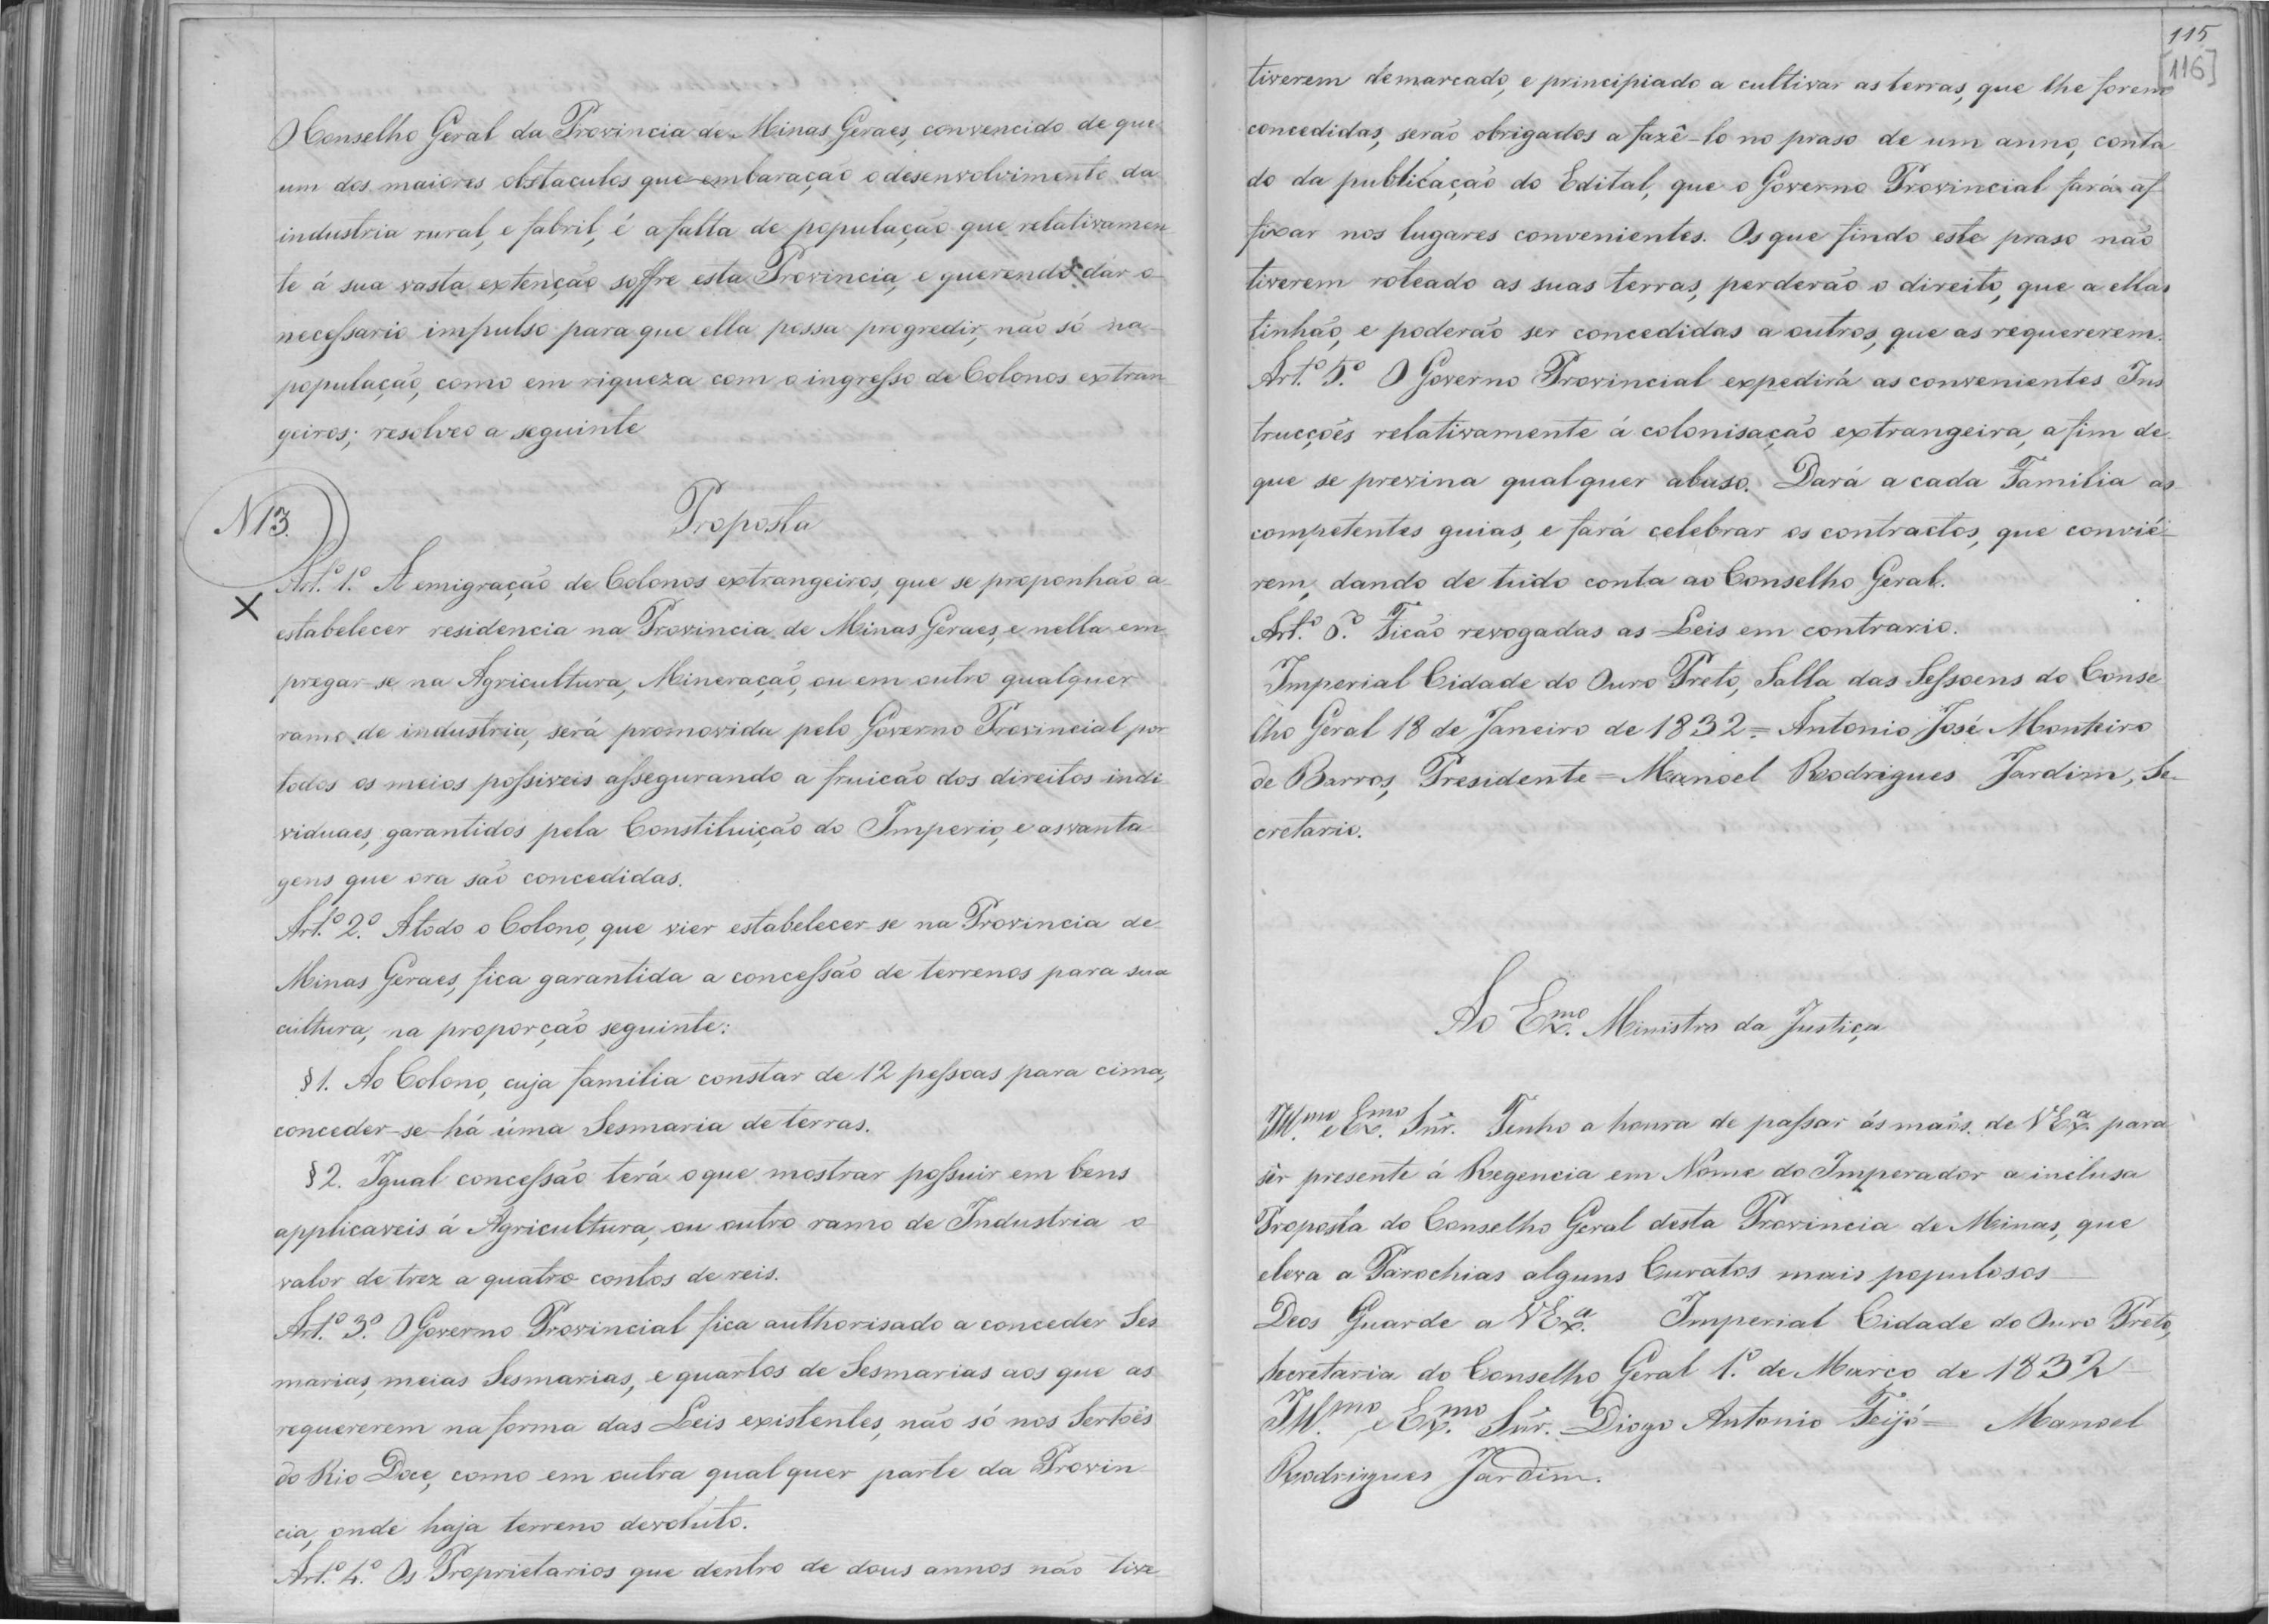 O Conselho Geral da Provincia de Minas Geraes, convencido de que
um dos maiores obstaculos que embaração o desenvolvimento da
industria rural, e fabril, é a falta de população que relativamen
te á sua vasta extenção soffre esta Provincia, e querendo dar o
necessario impulso para que ella possa progredir, não só na
população, como em riqueza com o ingresso de Colonos extran
geiros; resolveo a seguinte
N 13.
Proposta
Art.º 1.º A emigração de Colonos extrangeiros, que se proponhão a
estabelecer residencia na Provincia de Minas Geraes, e nella em
pregar-se na Agricultura, Mineração, ou em outro qualquer
ramo de industria, será promovida pelo Governo Provincial por
todos os meios possiveis assegurando a fruicão dos direitos indi
viduaes, garantidos pela Constituição do Imperio, e as vanta
gens que ora são concedidas.
Art.º 2.º A todo o Colono, que vier estabelecer-se na Provincia de
Minas Geraes, fica garantida a concessão de terrenos para sua
cultura, na proporção seguinte:
§ 1. Ao Colono, cuja familia constar de 12 pessoas para cima,
conceder-se-há uma Sesmaria de terras.
§ 2. Igual concessão terá o que mostrar possuir em bens
applicaveis á Agricultura, ou outro ramo de Industria o
valor de trez a quatro contos de reis.
Art.º 3.º O Governo Provincial fica authorisado a conceder Ses
marias, meias Sesmarias, e quartos de Sesmarias aos que as
requererem na forma das Leis existentes, não só nos Sertoẽs
do Rio Doce, como em outra qualquer parte da Provin
cia, onde haja terreno devoluto.
Art.º 4.º Os Proprietarios que dentro de dous annos não tive
115
[116]
tiverem demarcado, e principiado a cultivar as terras, que lhe forem
concedidas, serão obrigados a fazê-lo no praso de um anno, conta
do da publicação do Edital, que o Governo Provincial fará af
fixar nos lugares convenientes. Os que findo este praso não
tiverem roteado as suas terras, perderão o direito, que a ellas
tinhão, e poderão ser concedidas a outros, que as requererem.
Art.º 5.º O Governo Provincial expedirá as convenientes Ins
trucções relativamente á colonisação extrangeira, a fim de
que se previna qualquer abuso. Dará a cada Familia as
competentes guias, e fará celebrar os contractos, que convié
rem, dando de tudo conta ao Conselho Geral.
Art.º 6.º Ficão revogadas as Leis em contrario.
Imperial Cidade do Ouro Preto, Salla das Sessoens do Conse
lho Geral 18 de Janeiro de 1832 = Antonio José Monteiro
de Barros, Presidente = Manoel Rodrigues Jardim, Se-
cretario.
Ao Ex.mo Ministro da Justiça
Ill.mo e Ex.mo Snr. Tenho a honra de passar ás maõs de V Ex.a para
ser presente á Regencia em Nome do Imperador a inclusa
Proposta do Conselho Geral desta Provincia de Minas, que
eleva a Parochias alguns Curatos mais populosos
Deos Guarde a V Ex.a Imperial Cidade do Ouro Preto,
Secretaria do Conselho Geral 1.º de Março de 1832
Ill.mo e Ex.mo Snr. Diogo Antonio Feijó = Manoel
Rodrigues Jardim.